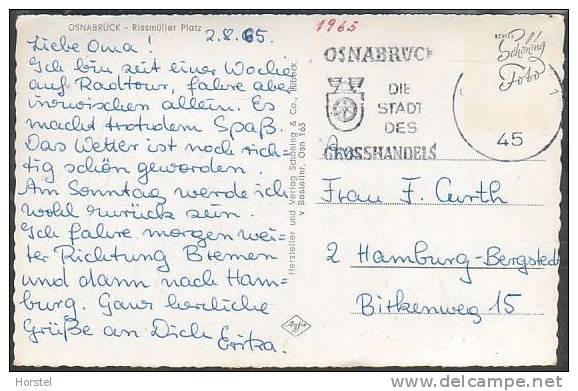 OSNABRÜCK - Rissmüller Platz
2.8.65.
1965
Liebe Oma!
Ich bin seit einer Woche
auf Radtour, fahre aber
inzwischen allein. Es
macht trotzdem Spaß.
Das Wetter ist noch rich-
tig schön geworden.
Am Sonntag werde ich
wohl zurück sein.
Ich fahre morgen wei-
ter Richtung Bremen
und dann nach Ham-
burg. Ganz herzliche
Grüße an Dich Erika.
Hersteller und Verlag Schöning & Co., Lübeck
v Bestellnr. Osn 165
OSNABRÜCK
DIE
STADT
DES
GROSSHANDELS
ECHTES
Schöning
Foto
45
Frau F. Curth
2 Hamburg-Bergstedt
Birkenweg 15
Agfa
Horstel
delcampe.net